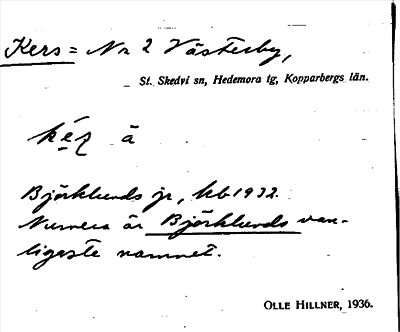 Kers = Nr 2 Västerby,
St. Skedvi sn, Hedemora tg, Kopparbergs län.
ä
Björklunds jr, kb 1932.
Numera är Björklunds van-
ligaste namnet.
OLLE HILLNER, 1936.